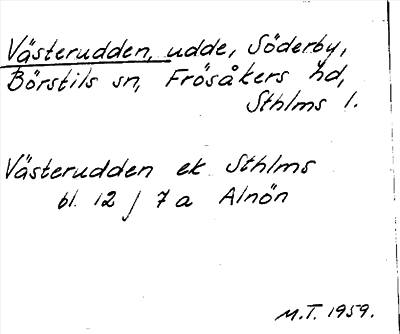 Västerudden, udde, Söderby,
Börstils sn, Frösåkers hd,
Sthlms l.
Västerudden ek Sthlms
bl. 12 j 7 a Alnön
M.T. 1959.